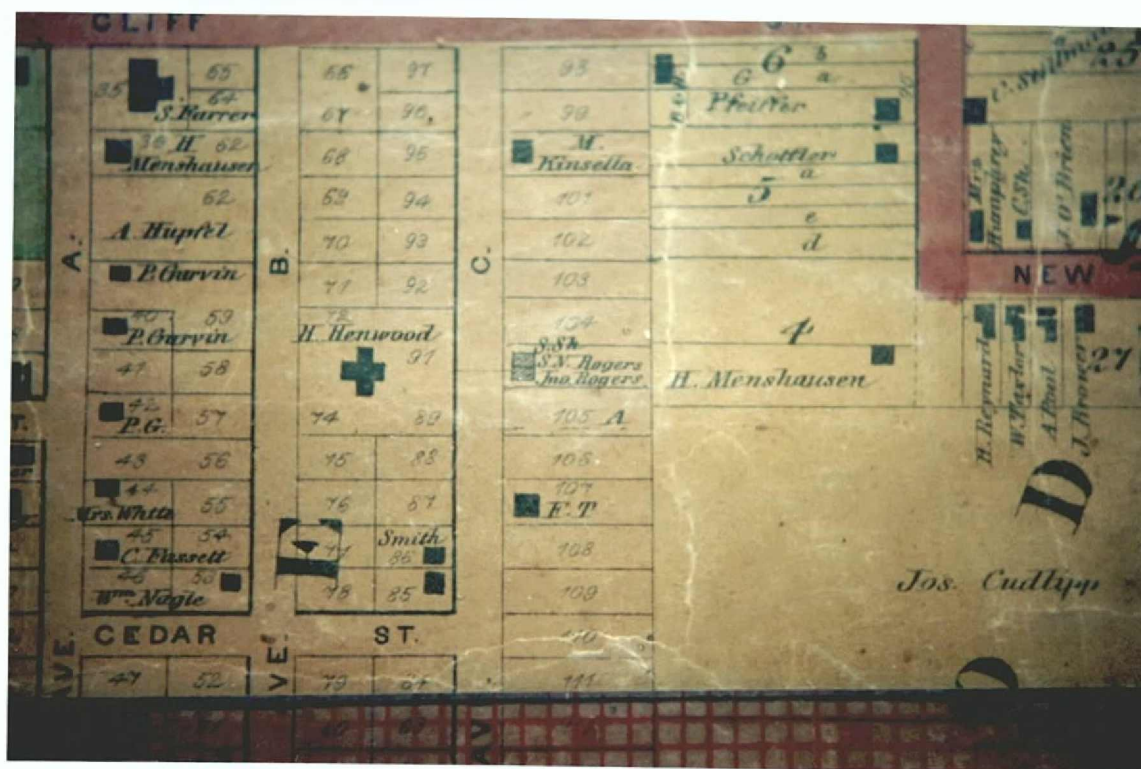 CLIFF
35 65
64
S. Farrer
36 H. 62
Menshausen
62
A. Hupfel
P. Garvin
40 59
P. Garvin
41 58
42 57
P.G.
43 56
44 55
Mrs. White
45 54
C. Fassett
46 53
Wm. Nagle
CEDAR ST.
47 52
A.
AVE.
B.
VE.
C.
AV
66 97
67 96
68 95
69 94
70 93
71 92
72
H. Henwood
91
74 89
75 88
76 87
E
77 Smith
86
78 85
79 84
98
99
M.
Kinsella
101
102
103
104
S. Sh.
S.N. Rogers
Jno. Rogers
105 A
106
107
F. T
108
109
110
111
6 b
G a
Pfeiffer
Schottler
a
5
e
d
4
H. Menshausen
25
Humphrer
C. Sh.
J. O'Brien
NEW
H. Reynard
W. Taylor
A. Paul
J. Brower
27
D
Jos. Cudlipp